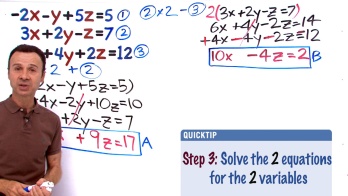 -2x-y+5z=5 ①
3x+2y-z=7 ②
+4y+2z=12 ③
2 + ②
x-y+5z=5)
4x-2y+10z=10
+2y-z=7
+9z=17 A
②x2-③
2(3x+2y-z=7)
6x+4y-2z=14
+4x-4y-2z=12
10x -4z=2 B
QUICKTIP
Step 3: Solve the 2 equations
for the 2 variables